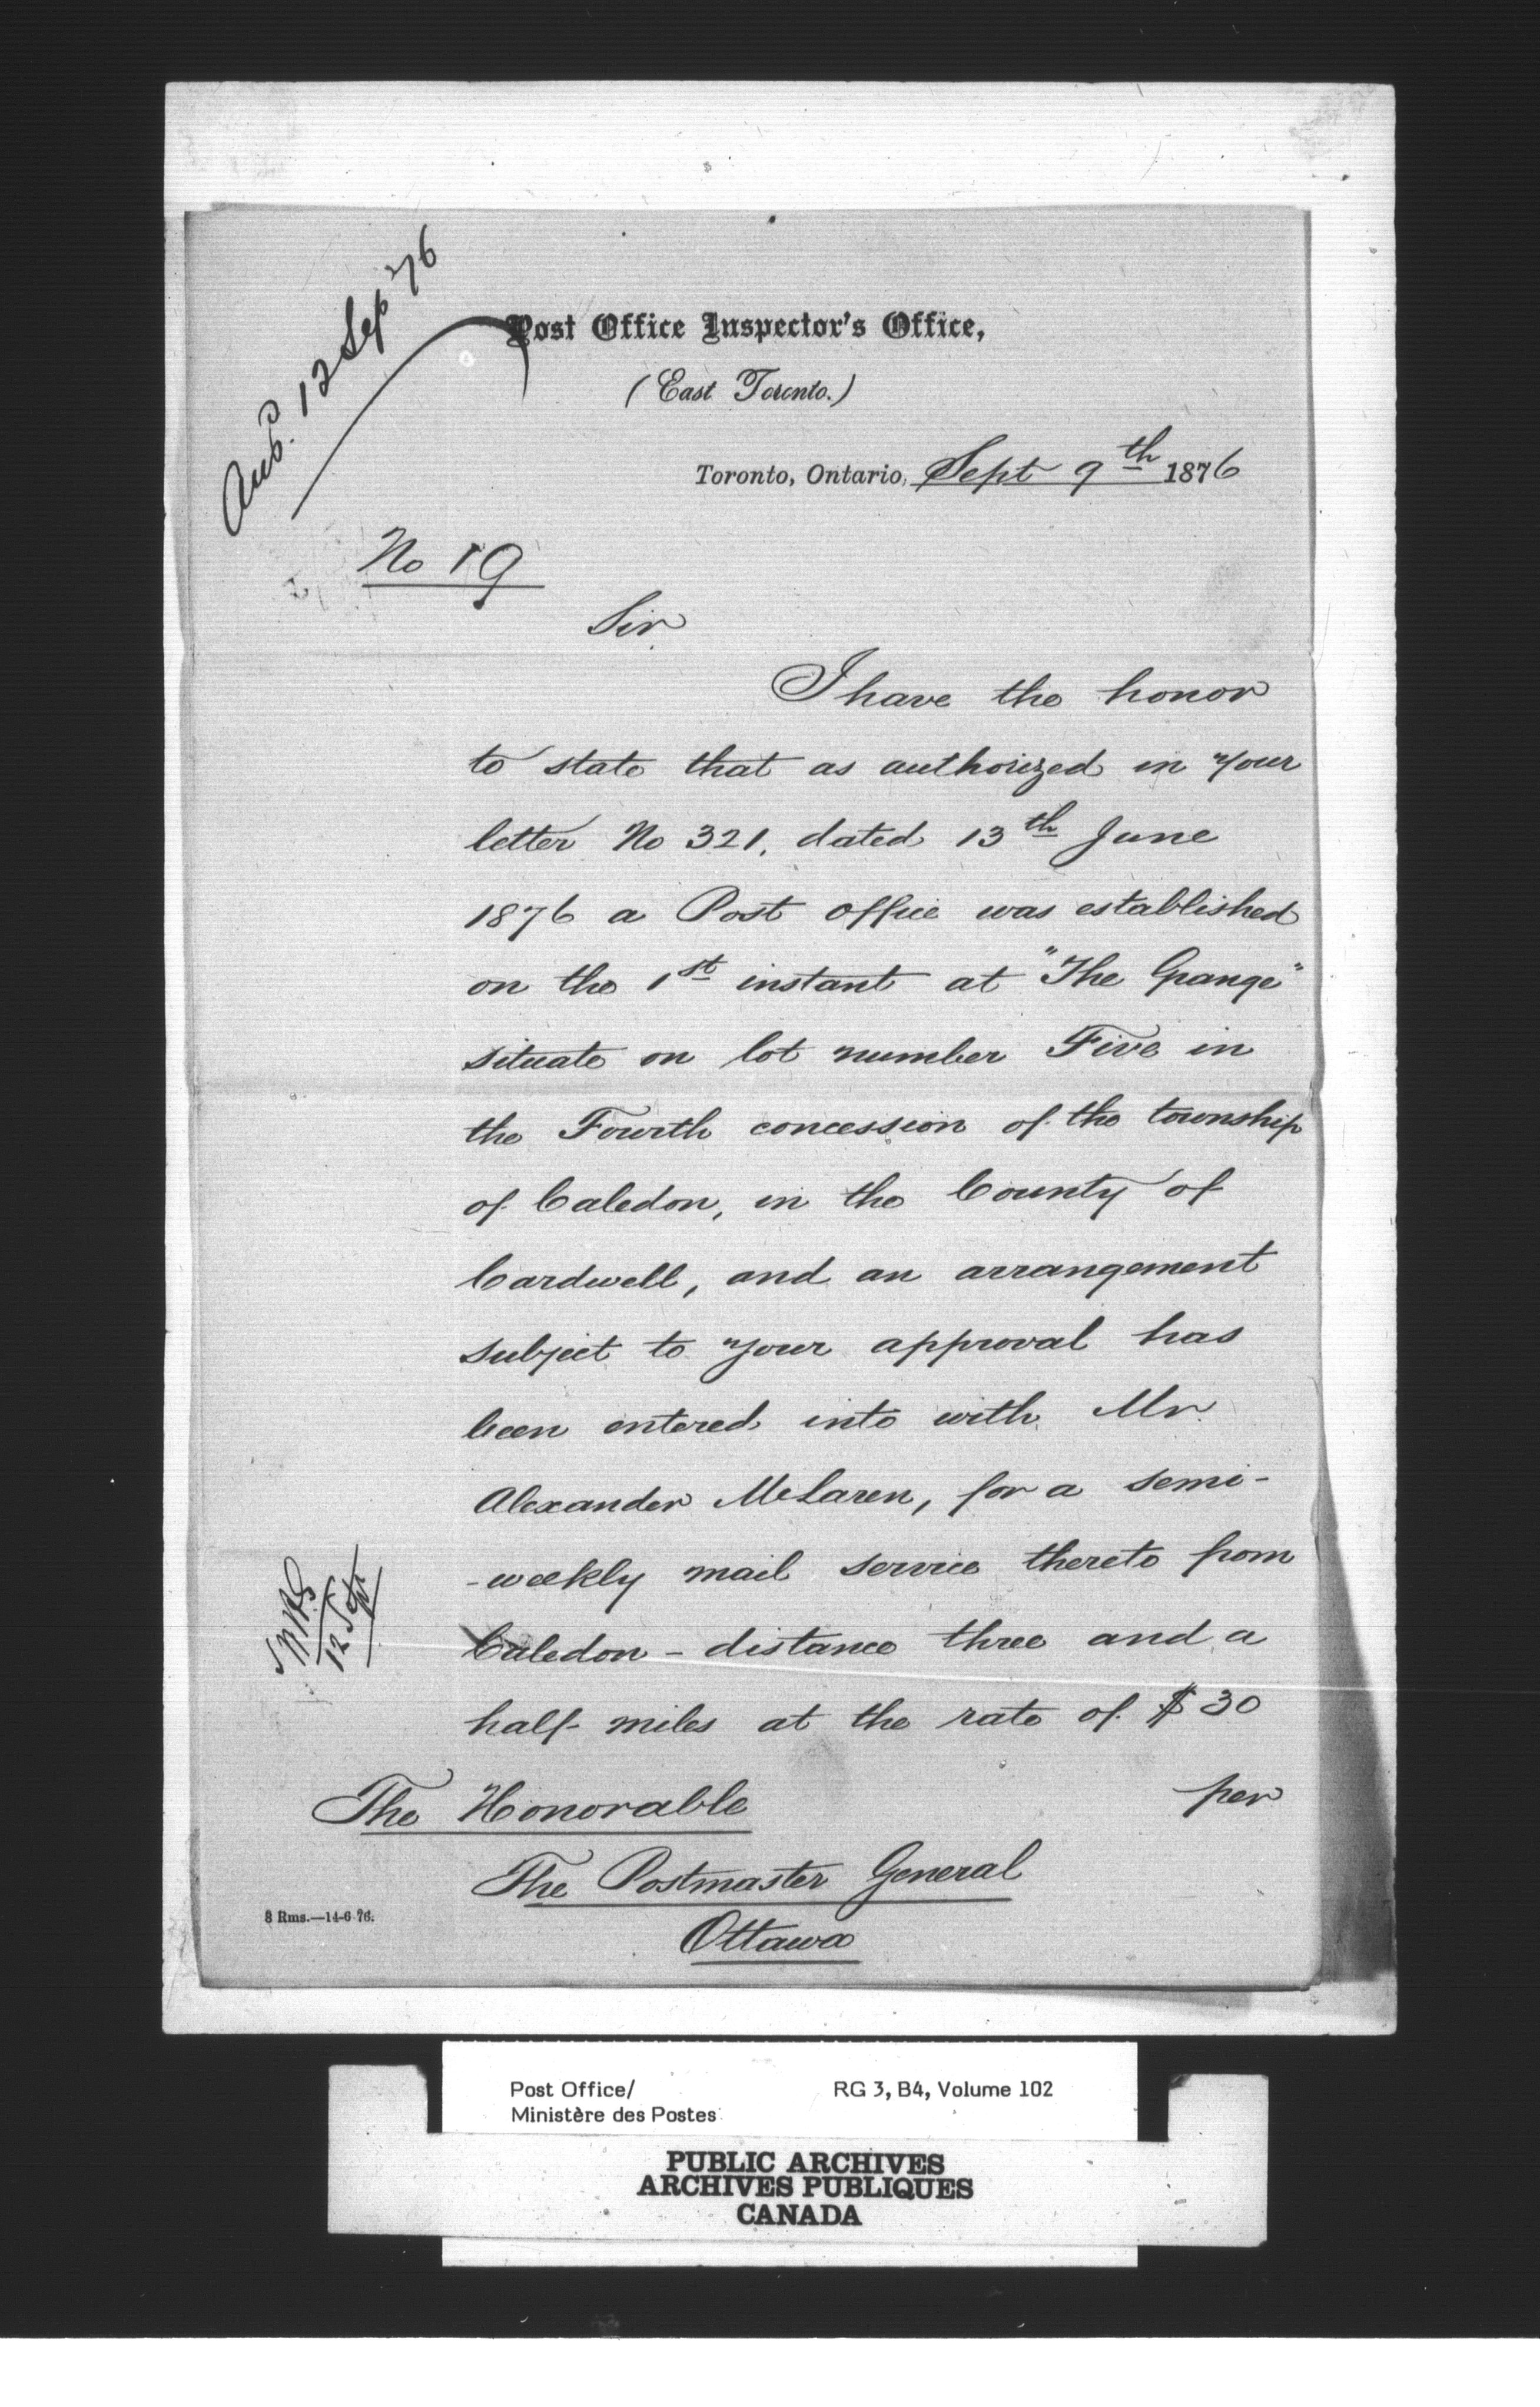 Ansd. 12 Sep '76
Post Office Inspector's Office,
(East Toronto.)
Toronto, Ontario, Sept 9th 1876
No 19
Sir
I have the honor
to state that as authorized in your
letter No 321, dated 13th June
1876 a Post office was established
on the 1st instant at "The Grange"
situate on lot number Five in
the Fourth concession of the township
of Caledon, in the County of
Cardwell, and an arrangement
subject to your approval has
been entered into with Mr.
Alexander McLaren, for a semi-
-weekly mail service thereto from
Caledon - distance three and a
half miles at the rate of $30
per
12 Sept
The Honorable
The Postmaster General
Ottawa
8 Rms.—14-6-76.
Post Office/
Ministère des Postes
RG 3, B4, Volume 102
PUBLIC ARCHIVES
ARCHIVES PUBLIQUES
CANADA